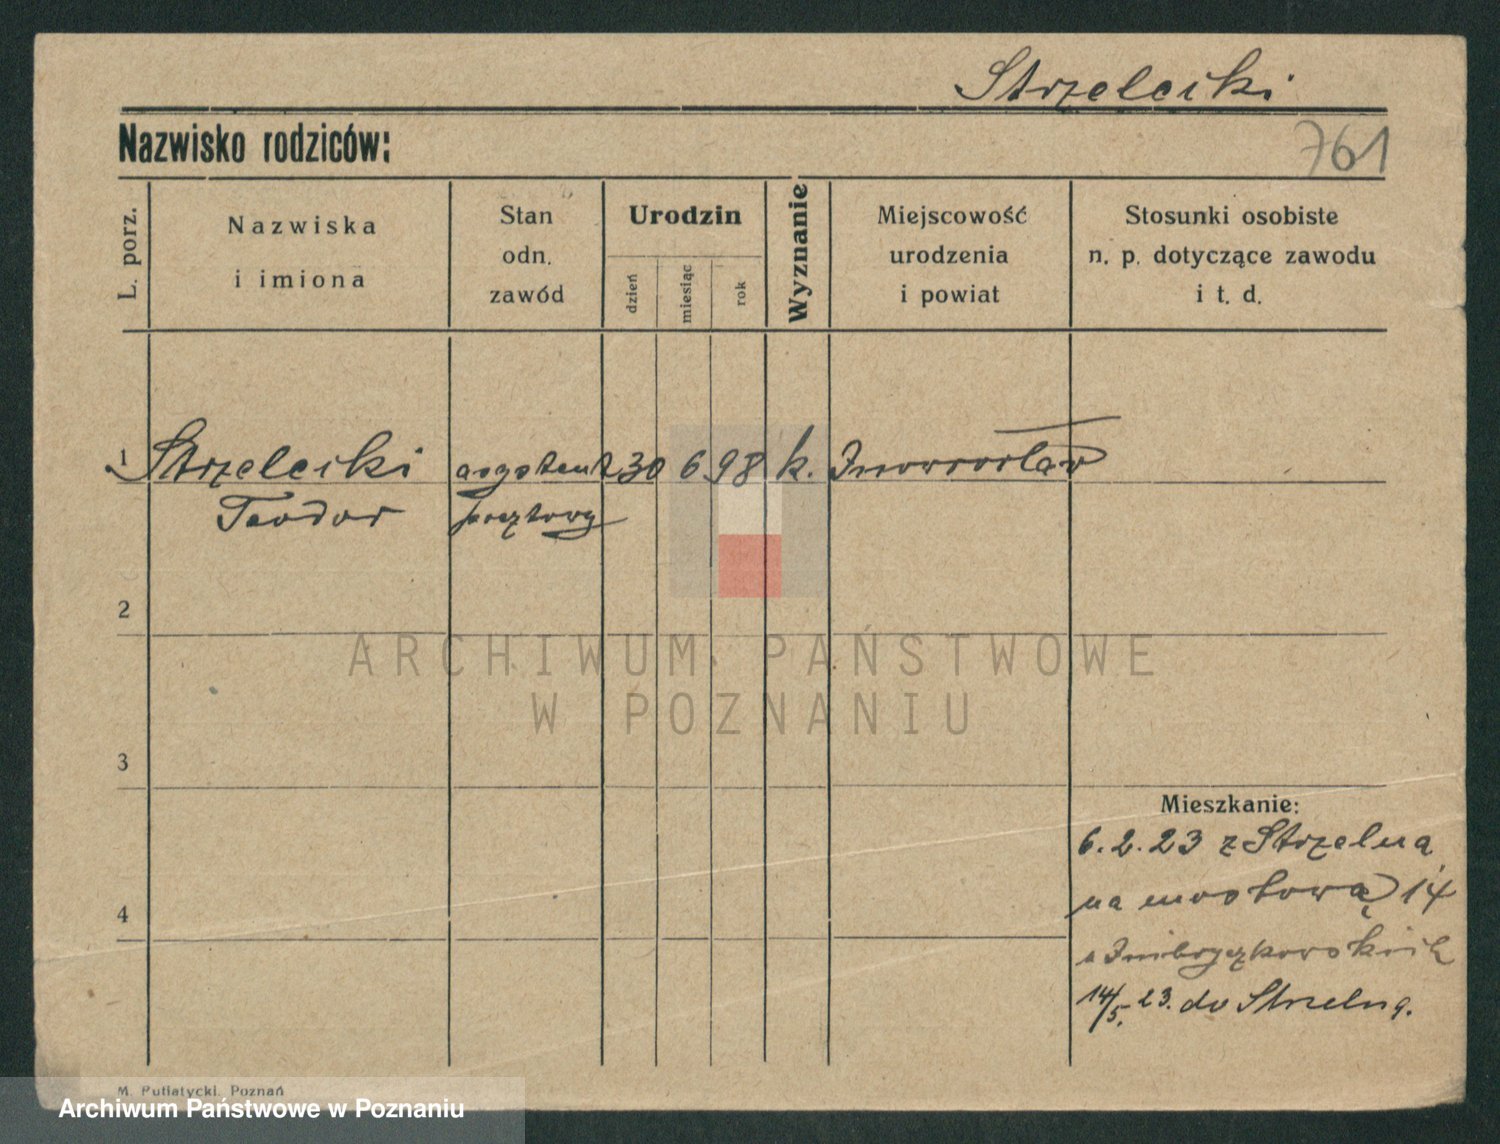 Strzelecki
Nazwisko rodziców:
761
L. porz.
Nazwiska
i imiona
Stan
odn.
zawód
Urodzin
dzień
miesiąc
rok
Wyznanie
Miejscowość
urodzenia
i powiat
Stosunki osobiste
n. p. dotyczące zawodu
i t. d.
1 Strzelecki asystent 30 6 98 k. Inowrocław
Teodor pocztowy
2
ARCHIWUM PAŃSTWOWE
W POZNANIU
3
Mieszkanie:
6.2.23 z Strzelna
4
na mostową 14
14/5. 23. do Strzelna.
M. Putiatycki, Poznań
Archiwum Państwowe w Poznaniu